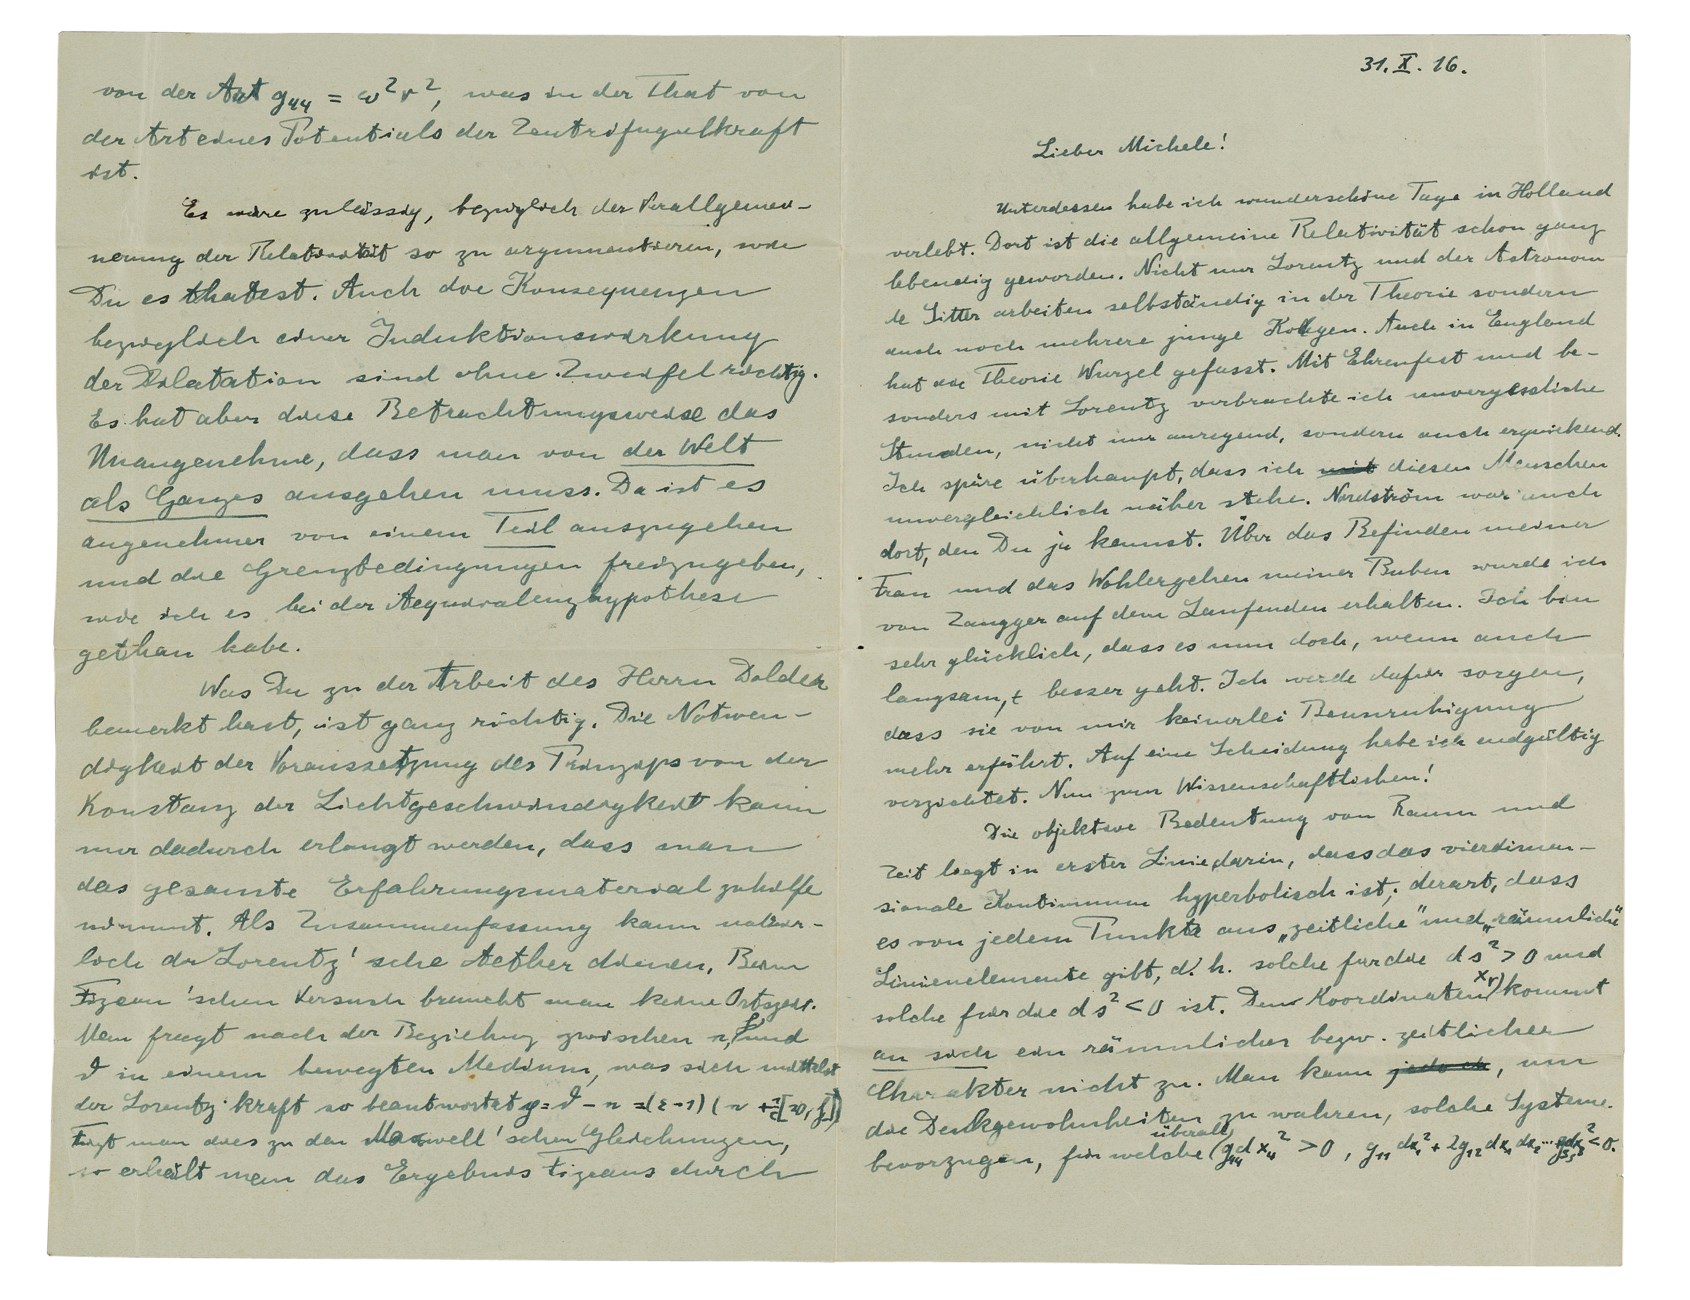 von der Art g₄₄ = ω²r², was in der That von
der Art eines Potentials der Zentrifugalkraft
ist.
Es wäre zulässig, bezüglich der Verallgemei-
nerung der Relativität so zu argumentieren, wie
Du es thatest. Auch die Konsequenzen
bezüglich einer Induktionswirkung
der Dilatation sind ohne Zweifel richtig.
Es hat aber diese Betrachtungsweise das
Unangenehme, dass man von der Welt
als Ganzes ausgehen muss. Da ist es
angenehmer von einem Teil auszugehen
und die Grenzbedingungen freizugeben,
wie ich es bei der Aequivalenzhypothese
gethan habe.
Was Du zu der Arbeit des Herrn Dolder
bemerkt hast, ist ganz richtig. Die Notwen-
digkeit der Voraussetzung des Prinzips von der
Konstanz der Lichtgeschwindigkeit kann
nur dadurch erlangt werden, dass man
das gesamte Erfahrungsmaterial zuhilfe
nimmt. Als Zusammenfassung kann natür-
lich der Lorentz'sche Aether dienen. Beim
Fizeau'schen Versuch braucht man keine Ortszeit.
Man fragt nach der Beziehung zwischen und
in einem bewegten Medium, was sich mittelst
der Lorentz-kraft so beantwortet
Fügt man dies zu den Maxwell'schen Gleichungen,
so erhält man das Ergebnis Fizeaus durch
31. X. 16.
Lieber Michele!
Unterdessen habe ich wunderschöne Tage in Holland
verlebt. Dort ist die allgemeine Relativität schon ganz
lebendig geworden. Nicht nur Lorentz und der Astronom
de Sitter arbeiten selbständig in der Theorie sondern
auch noch mehrere junge Kollegen. Auch in England
hat die Theorie Wurzel gefasst. Mit Ehrenfest und be-
sonders mit Lorentz verbrachte ich unvergessliche
Stunden, nicht nur anregend, sondern auch erquickend.
Ich spüre überhaupt, dass ich mit diesen Menschen
unvergleichlich näher stehe. Nordström war auch
dort, den Du ja kennst. Über das Befinden meiner
Frau und das Wohlergehen meiner Buben wurde ich
von Zangger auf dem Laufenden erhalten. Ich bin
sehr glücklich, dass es nun doch, wenn auch
langsam, besser geht. Ich werde dafür sorgen,
dass sie von mir keinerlei Beunruhigung
mehr erfährt. Auf eine Scheidung habe ich endgültig
verzichtet. Nun zum Wissenschaftlichen!
Die objektive Bedeutung von Raum und
Zeit liegt in erster Linie darin, dass das vierdimen-
sionale Kontinuum hyperbolisch ist, derart, dass
es von jedem Punkte aus „zeitliche" und „räumliche"
Linienelemente gibt, d. h. solche für die ds² > 0 und
solche für die ds² < 0 ist. Den Koordinaten xᵥ kommt
an sich ein räumlicher bezw. zeitlicher
Charakter nicht zu. Man kann jedoch, um
die Denkgewohnheiten zu wahren, solche Systeme
bevorzugen, für welche (überall) g₄₄dx₄² > 0, g₁₁dx₁² + 2g₁₂dx₁dx₂ ... g₃₃dx₃² < 0.